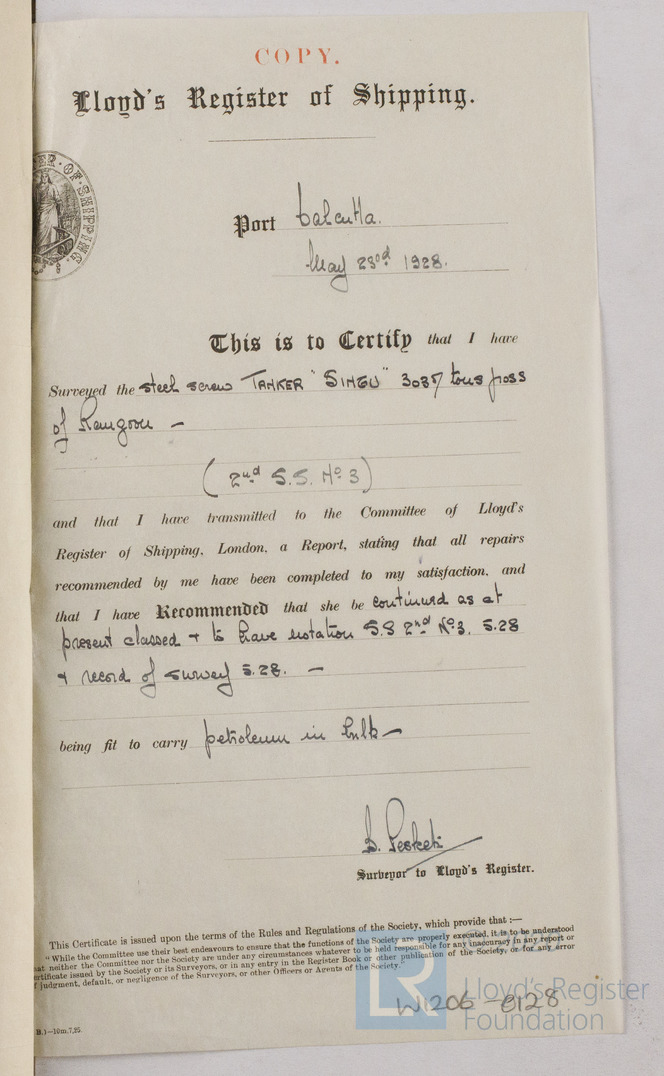 COPY.
Lloyd's Register of Shipping.
ER · OF · SHIPPING.
Port Calcutta.
May 23rd 1928.
This is to Certify that I have
Surveyed the steel screw TANKER "SINGU" 3037 tons gross
of Rangoon —
(2nd S.S. No 3)
and that I have transmitted to the Committee of Lloyd's
Register of Shipping, London, a Report, stating that all repairs
recommended by me have been completed to my satisfaction, and
that I have Recommended that she be continued as at
present classed + to have notation S.S 2nd No3. 5.28
+ record of survey 5.28. —
being fit to carry petroleum in bulk —
Surveyor to Lloyd's Register.
This Certificate is issued upon the terms of the Rules and Regulations of the Society, which provide that :—
"While the Committee use their best endeavours to ensure that the functions of the Society are properly executed, it is to be understood
at neither the Committee nor the Society are under any circumstances whatever to be held responsible for any inaccuracy in any report or
ertificate issued by the Society or its Surveyors, or in any entry in the Register Book or other publication of the Society, or for any error
f judgment, default, or negligence of the Surveyors, or other Officers or Agents of the Society."
LR Lloyd's Register
Foundation
W1206-0128
B.)—10m.7,25.